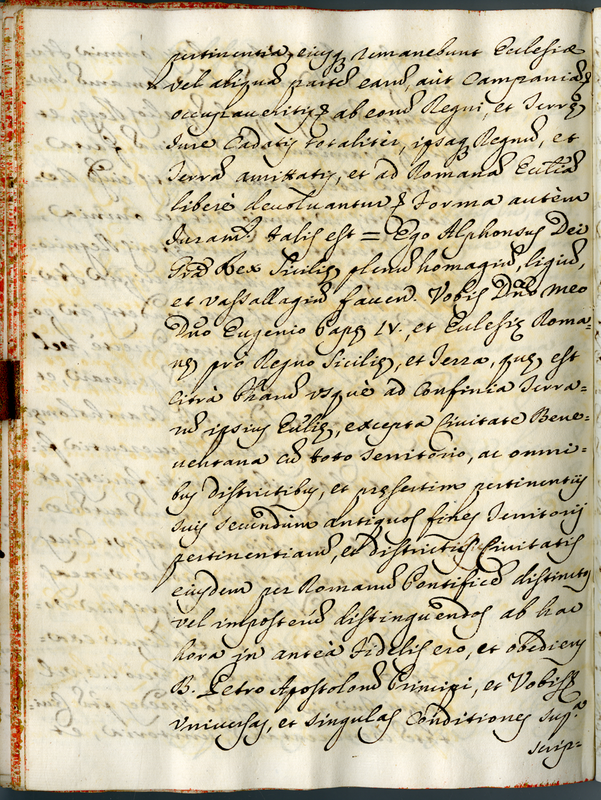 pertinentia, eiusq₃ remanebunt Eclesiæ
vel aliquã partẽ earũ, aùt Campaniã,
occupaveritis, ab eorũ Regni, et Terręq
Iure Cadatis totalitèr, ipsaq₃ Regnũ, et
Terrã amittatis, et ad Romanã Eccliã
liberè devolvantur, Forma autèm
Juram.ti talis est = Ego Alphonsus Dei
Grã Rex Sicilię, plenũ homagiũ, ligiũ,
et vassallagiũ faciens. Vobis Dño meo
Dño Eugenio Papę IV., et Eclesię Roma=
nę pro Regno Sicilię, et Terra, quę est
Citrà Pharũ vsquè ad Confinia Terra=
rũ ipsius Ecclię, excepta Civitate Bene=
ventana cũ toto Territorio, ac omni=
bus Districtibus, et pręsertim pertinentijs
suis secundùm antiquos fines Territorij
pertinentiarũ, et districtus Civitatis
eiusdem per Romanũ Pontificẽ distinctos
vel imposterũ distinguendos ab hac
hora in anteà Fidelis ero, et obediens
B. Petro Apostolorũ Principi, et Vobisq₃
Vniversas, et singulas Conditiones sup.a
scrip=